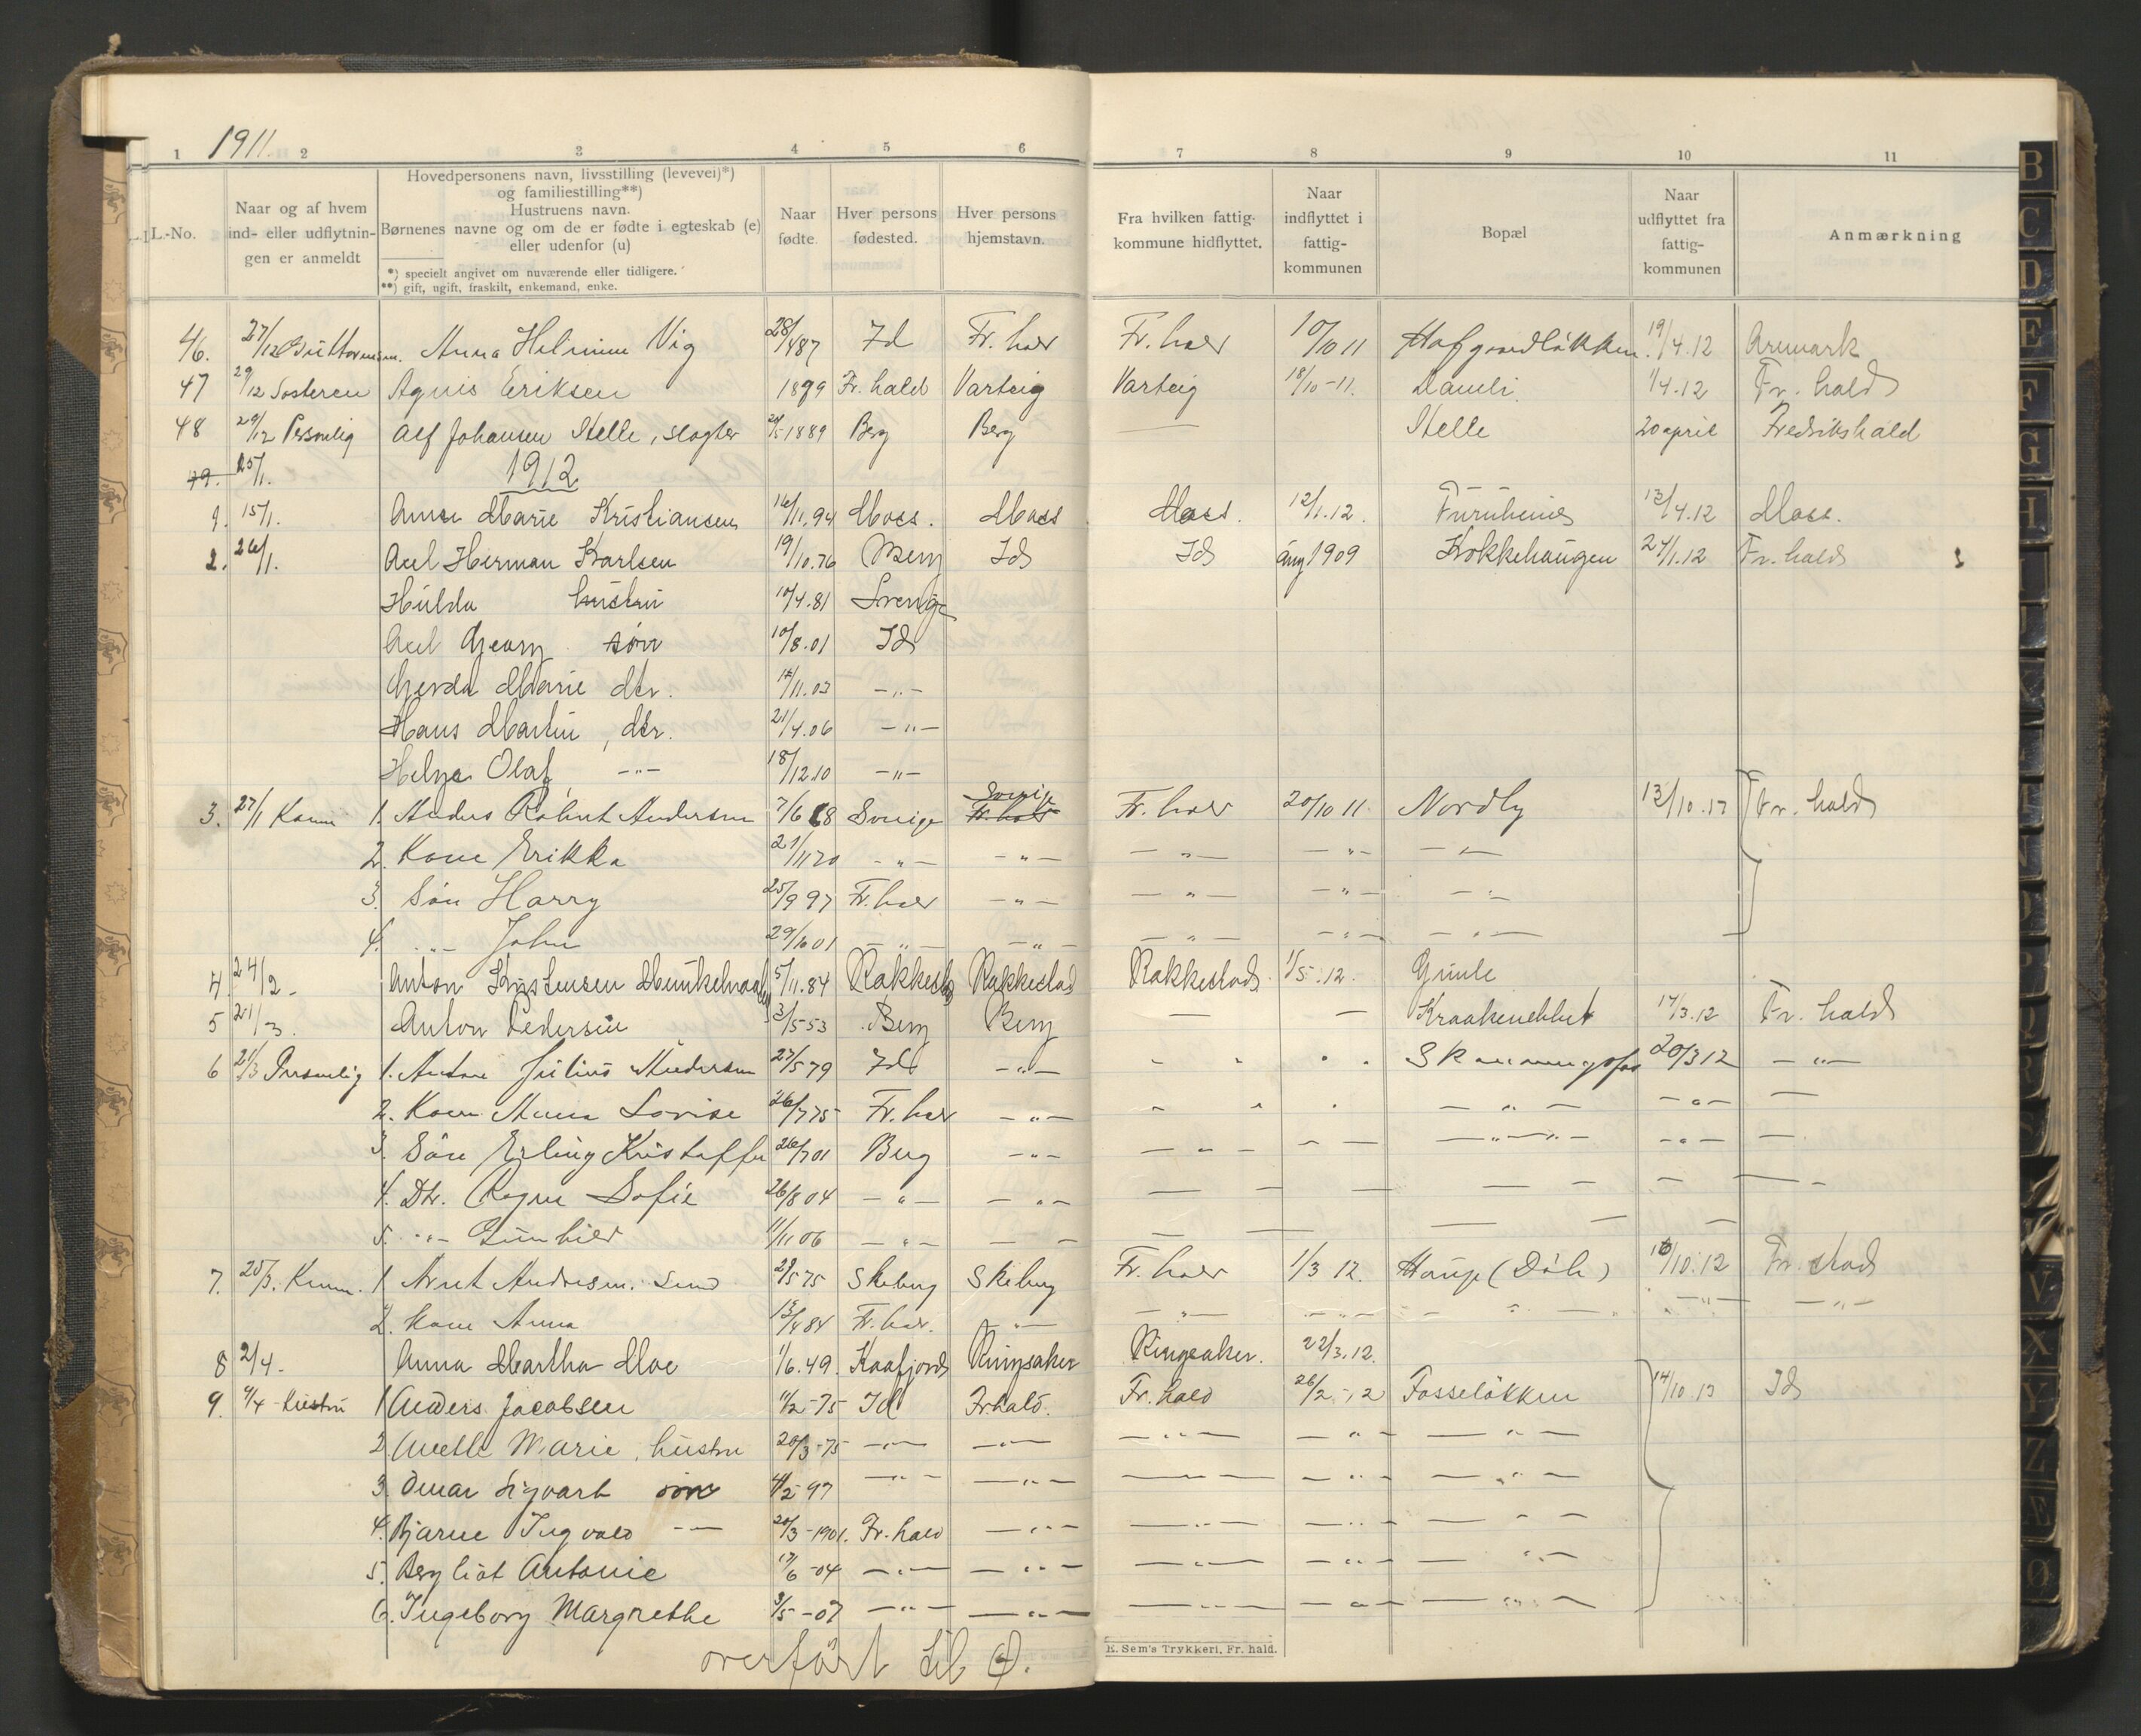 1911.
1 2 3 4 5 6 7 8 9 10 11
L.-No.
Naar og af hvem ind- eller udflytningen er anmeldt
Hovedpersonens navn, livsstilling (levevei)*)
og familiestilling**)
Hustruens navn.
Børnenes navne og om de er fødte i egteskab (e)
eller udenfor (u)
*) specielt angivet om nuværende eller tidligere.
**) gift, ugift, fraskilt, enkemand, enke.
Naar fødte.
Hver persons fødested.
Hver persons hjemstavn.
Fra hvilken fattigkommune hidflyttet.
Naar indflyttet i fattigkommunen
Bopæl
Naar udflyttet fra fattigkommunen
Anmærkning
46. 27/12 Anna Vig 28/4 87 Id Fr. hald Fr. hald 10/10 11 Hafgaardløkken 19/4.12 Aremark
47 29/12 Søsteren Agnis Eriksen Fr. hald Varteig Varteig 18/10-11. Damli 1/4.12 Fr. hald
48 29/12 Personlig Alf Johansen Stelle, slagter 1889 Berg Berg — Stelle 20 april Fredrikshald
49. 25/1.
1912
1. 15/1. Anna Marie Kristiansen 16/11.94 Moss. Moss Moss. 12/1.12. Furuheim 13/4.12 Moss.
2. 26/1. Axel Herman Karlsen 19/10.76 Berg Id Id aug 1909 Kokkehaugen 24/1.12 Fr. hald
Hulda hustru 10/4.81 Sverige
Axel Georg søn 10/8.01 Id
Gerda Marie dtr. 14/11.03 -"-
Hans Martin, dtr. 21/4.06 -"-
Helge Olaf -"- 18/12.10 -"-
3. 27/1 Konen 1. Anders Robert Andersen 7/6 68 Sverige Sverige Fr. hald Fr. hald 20/10 11. Nordby 13/10.13 Fr. hald
2. Kone Erikka 21/11 70 -"- -"- -"- -"- -"-
3. Søn Harry 25/9 97 Fr. hald -"- -"- -"- -"-
4. -"- John 29/10 01 -"- -"- -"- -"- -"-
4. 24/2- Anton Kristensen 5/11.84 Rakkestad Rakkestad Rakkestad. 1/5.12. Grimle
5 21/3. Anton Pedersen 3/5-53 Berg Berg — — 14/3.12 Fr. hald
6 21/3 Personlig 1. Anton Julius Andersen 27/5 79 Id -"- " " " " Skanningsfos 20/3 12 -"-
2. Kone Anna Lovise 26/7 75 Fr. hald -"- " " " -"- -"- —
3. Søn Erling Kristoffer 26/7 01 Berg -"- -"- — -"-"- -"- —
4. Dtr. Ragna Sofie 26/8 04 -"- -"- — — — — — — —
5. -"- Gunhild 11/11 06 -"- — — — — — — —
7. 25/3. Konen. 1. Arnt Andresen. 29/5 75 Skeberg Skeberg Fr. hald 1/3 12. Hauge (Døh) 10/10.12 Fr. stad
2. Kone Anna 13/4 84 Fr. hald. -"- -"- -"- -"- -"- -"-
8 2/4- Anna Martha Moe 1/6.49. Kaafjord Ringsaker Ringsaker. 22/3.12.
9. 4/4 - hustru 1 Anders Jacobsen 11/2-75 Id Fr.hald. Fr. hald 26/2-12 Fosseløkken 14/10 13 Id
2 Anette Marie, hustru 20/3-75 -"- -"- -"- -"- -"-
3. Omar Sigvart søn 4/2-97 -"- -"- -"- -"- -"-
4. Bjarne Ingvald -"- 20/3-1901. Fr. hald -"- -"- -"- -"-
5. Bergliot Antonie 17/6-04 -"- -"- -"- -"- -"-
6. Ingeborg Margrethe 3/5-07 -"- -"- -"- -"- -"-
overført til Ø.
E. Sem's Trykkeri, Fr. hald.
B C D E F G H V X Y Z Æ Ø